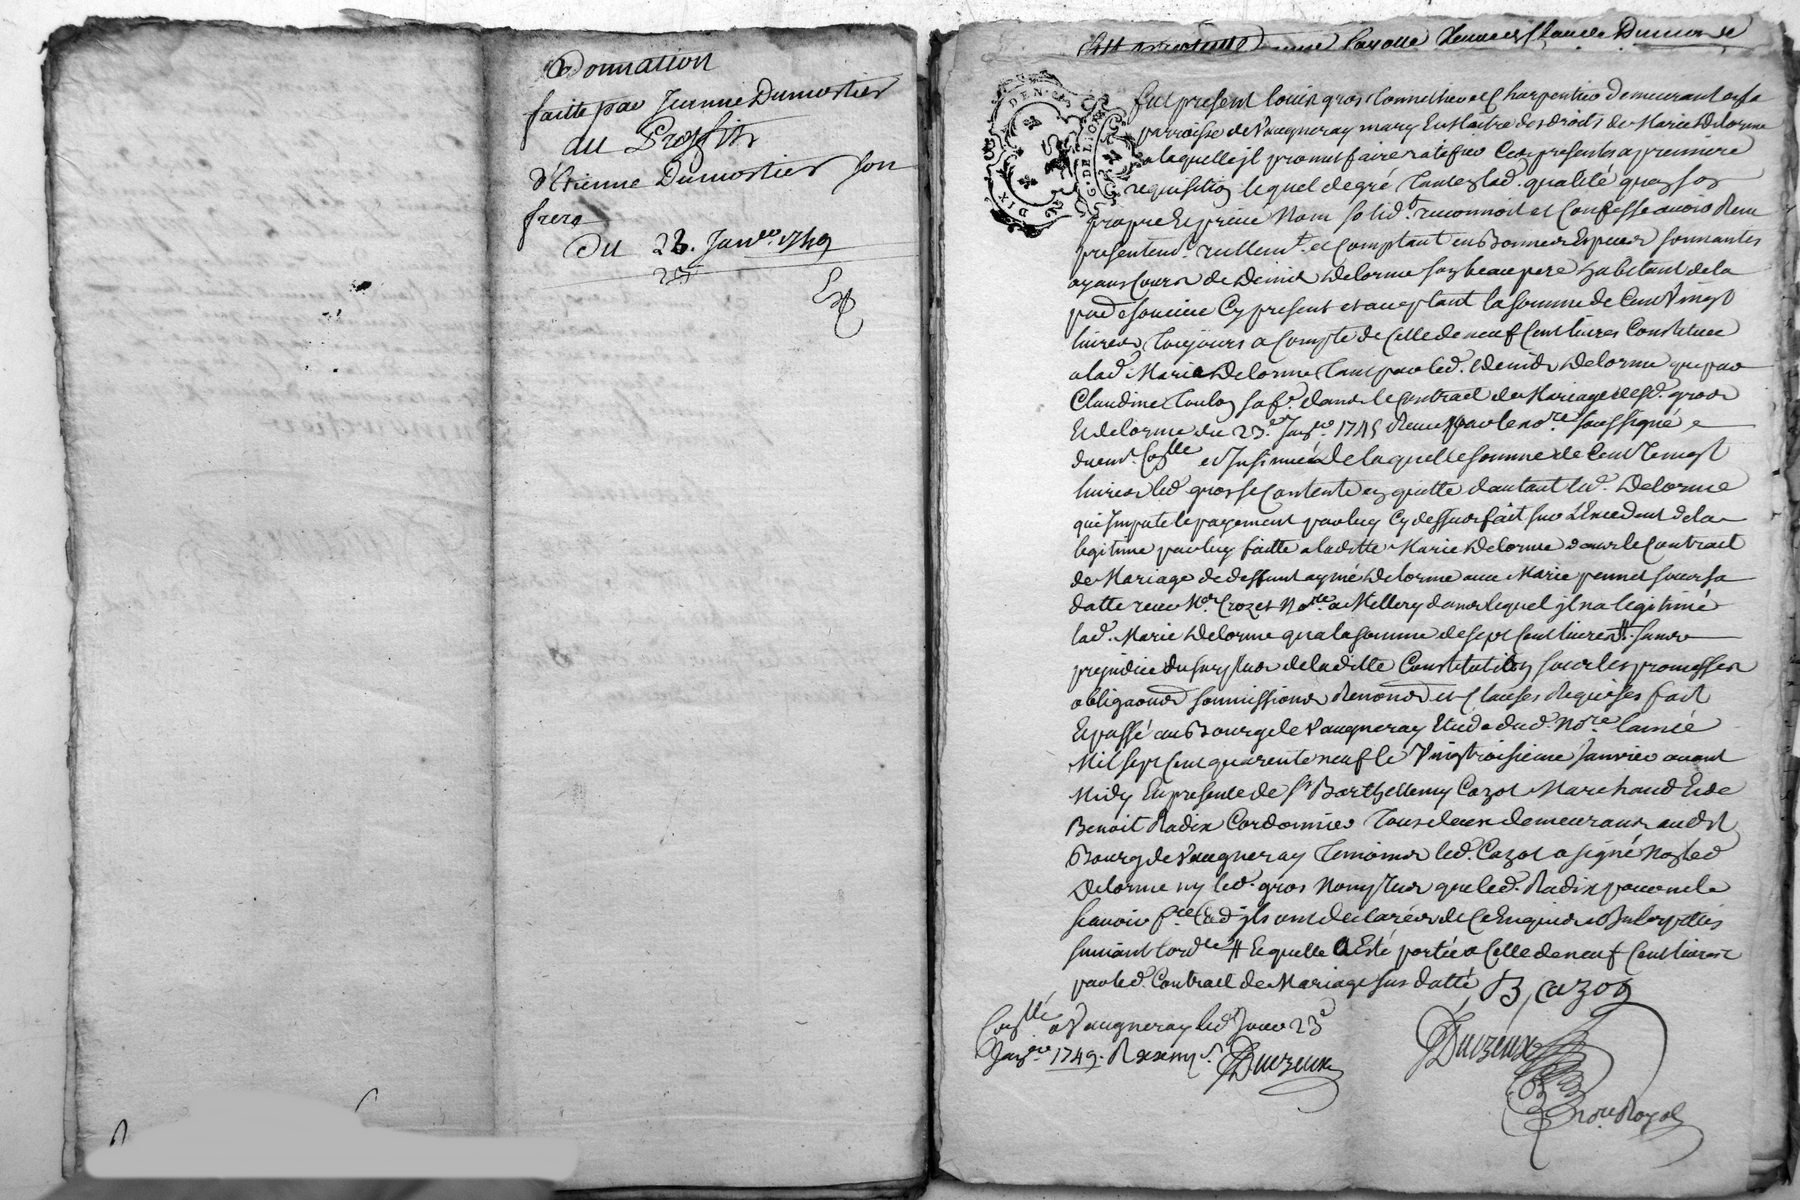 Donnation
faitte par Jeanne Dumortier
au Proffit
d'Etienne Dumortier son
frere
Du 23. Janer. 1749
Fut present Louis gros Tonnellier et Charpentier demeurant en la
parroisse de Vaugneray mary Et Maitre des droits de Marie Delorme
a laquelle jl promet faire ratefier Ces presentes a premiere
requisition lequel de gré tant en lad. qualité qu'en son
propre Et privé Nom solidt. reconnoit et Confesse avoir Receu
presentemt. réellemt. et Comptant en Bonnes Especes sonnantes
ayans Cours de Denis Delorme son beau pere habitant de la
pard. Cy present et aceptant la somme de Cent Vingt
livres Toujours a Compte de Celle de neuf Cent livres Constituée
a lad. Marie Delorme tant par led. Denis Delorme que par
Claudine sa fe. dans le Contract de Mariage desd. gros
Et delorme du 23e. Janer. 1745 Receu par le nore. soussigné
duemt. Conllé et Insinué de laquelle somme de Cent Vingt
livres led. gros se Contente en quitte d'autant led. Delorme
qui Impute le payement par luy Cy dessus fait sur L'Excedent de la
legitime par luy faitte a laditte Marie Delorme dans le Contract
de Mariage de deffunt aymé Delorme avec Marie pennet sous sa
datte receu Me. Crozet Nore. a Millery dans lequel jl n'a legitimé
lad. Marie Delorme qu'a la somme de sept Cent livres # sans
prejudice du surplus de laditte Constitution sous les promesses
obligaons soumissions Renonons et Clauses Requises fait
Et passé au Bourg de Vaugneray Etude dud. Nore. l'année
Mil sept Cent quarente neuf le Vingtroisieme Janvier avant
Midy En presence de sr. Barthellemy Cazot Marchand Et de
Benoit Radix Cordonnier Tous deux demeurans audit
Bourg de Vaugneray Temoins led. Cazot a signé Non led
Delorme ny led. gros Non plus que led. Radix pour ne le
scavoir fre. Comme jls ont declarés de Ce Enquis et Interpellés
suivant l'ordce # Lequelle a Esté portée a Celle de neuf Cent livres
par led. Contract de Mariage sus datté
B, Cazot
Conllé a Vaugneray led. Jour 23e
Janer. 1749. R
Duizeux
Duizeux
nore. Royal
DIX DEN.
G. DE LION